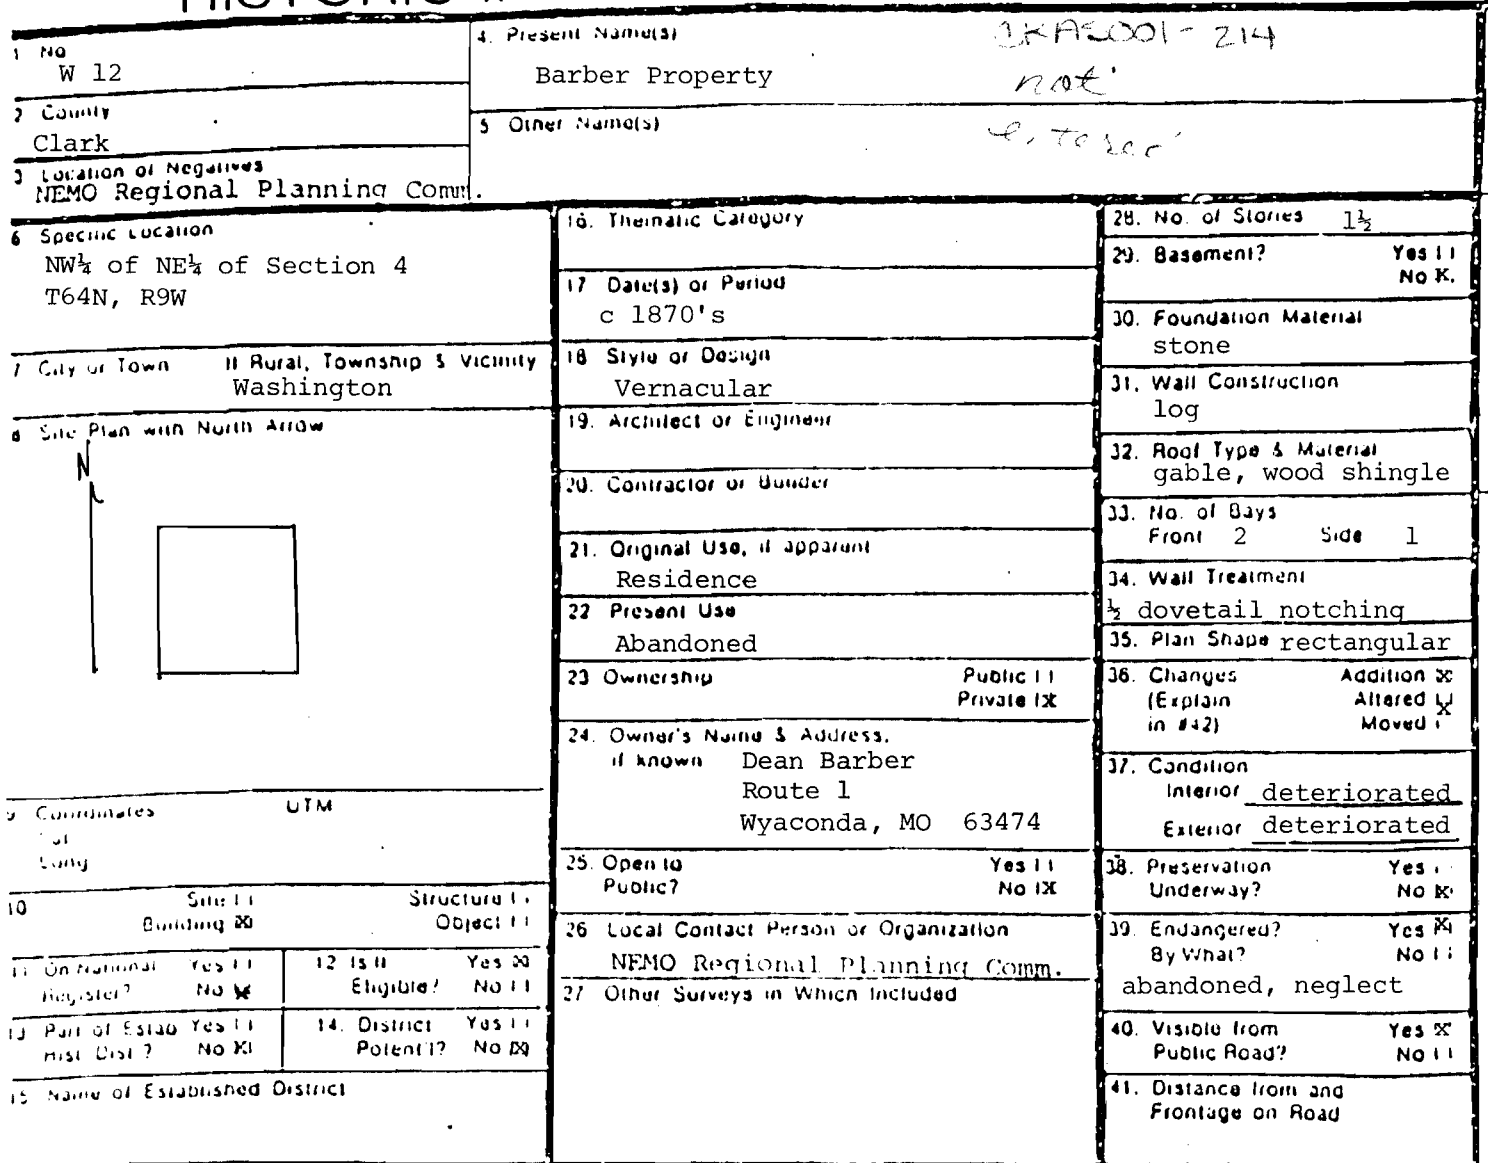 1 No
W 12
4. Present Name(s)
Barber Property
CKAS001-214
not
entered
2 County
Clark
5 Other Name(s)
3 Location of Negatives
NEMO Regional Planning Comm.
6 Specific Location
NW¼ of NE¼ of Section 4
T64N, R9W
7 City or Town If Rural, Township & Vicinity
Washington
8 Site Plan with North Arrow
N
9 Coordinates UTM
Lat
Long
10 Site [ ] Structure [ ]
Building [X] Object [ ]
11 On National Yes [ ]
Register? No [X]
12 Is it Yes [X]
Eligible? No [ ]
13 Part of Estab Yes [ ]
Hist. Dist.? No [X]
14. District Yes [ ]
Potent'l? No [X]
15 Name of Established District
16. Thematic Category
17 Date(s) or Period
c 1870's
18 Style or Design
Vernacular
19. Architect or Engineer
20. Contractor or Builder
21. Original Use, if apparent
Residence
22 Present Use
Abandoned
23 Ownership Public [ ]
Private [X]
24. Owner's Name & Address,
if known Dean Barber
Route 1
Wyaconda, MO 63474
25. Open to Yes [ ]
Public? No [X]
26 Local Contact Person or Organization
NEMO Regional Planning Comm.
27 Other Surveys in Which Included
28. No. of Stories 1½
29. Basement? Yes [ ]
No [X]
30. Foundation Material
stone
31. Wall Construction
log
32. Roof Type & Material
gable, wood shingle
33. No. of Bays
Front 2 Side 1
34. Wall Treatment
½ dovetail notching
35. Plan Shape rectangular
36. Changes Addition [X]
(Explain Altered [X]
in #42) Moved [ ]
37. Condition
Interior deteriorated
Exterior deteriorated
38. Preservation Yes [ ]
Underway? No [X]
39. Endangered? Yes [X]
By What? No [ ]
abandoned, neglect
40. Visible from Yes [X]
Public Road? No [ ]
41. Distance from and
Frontage on Road